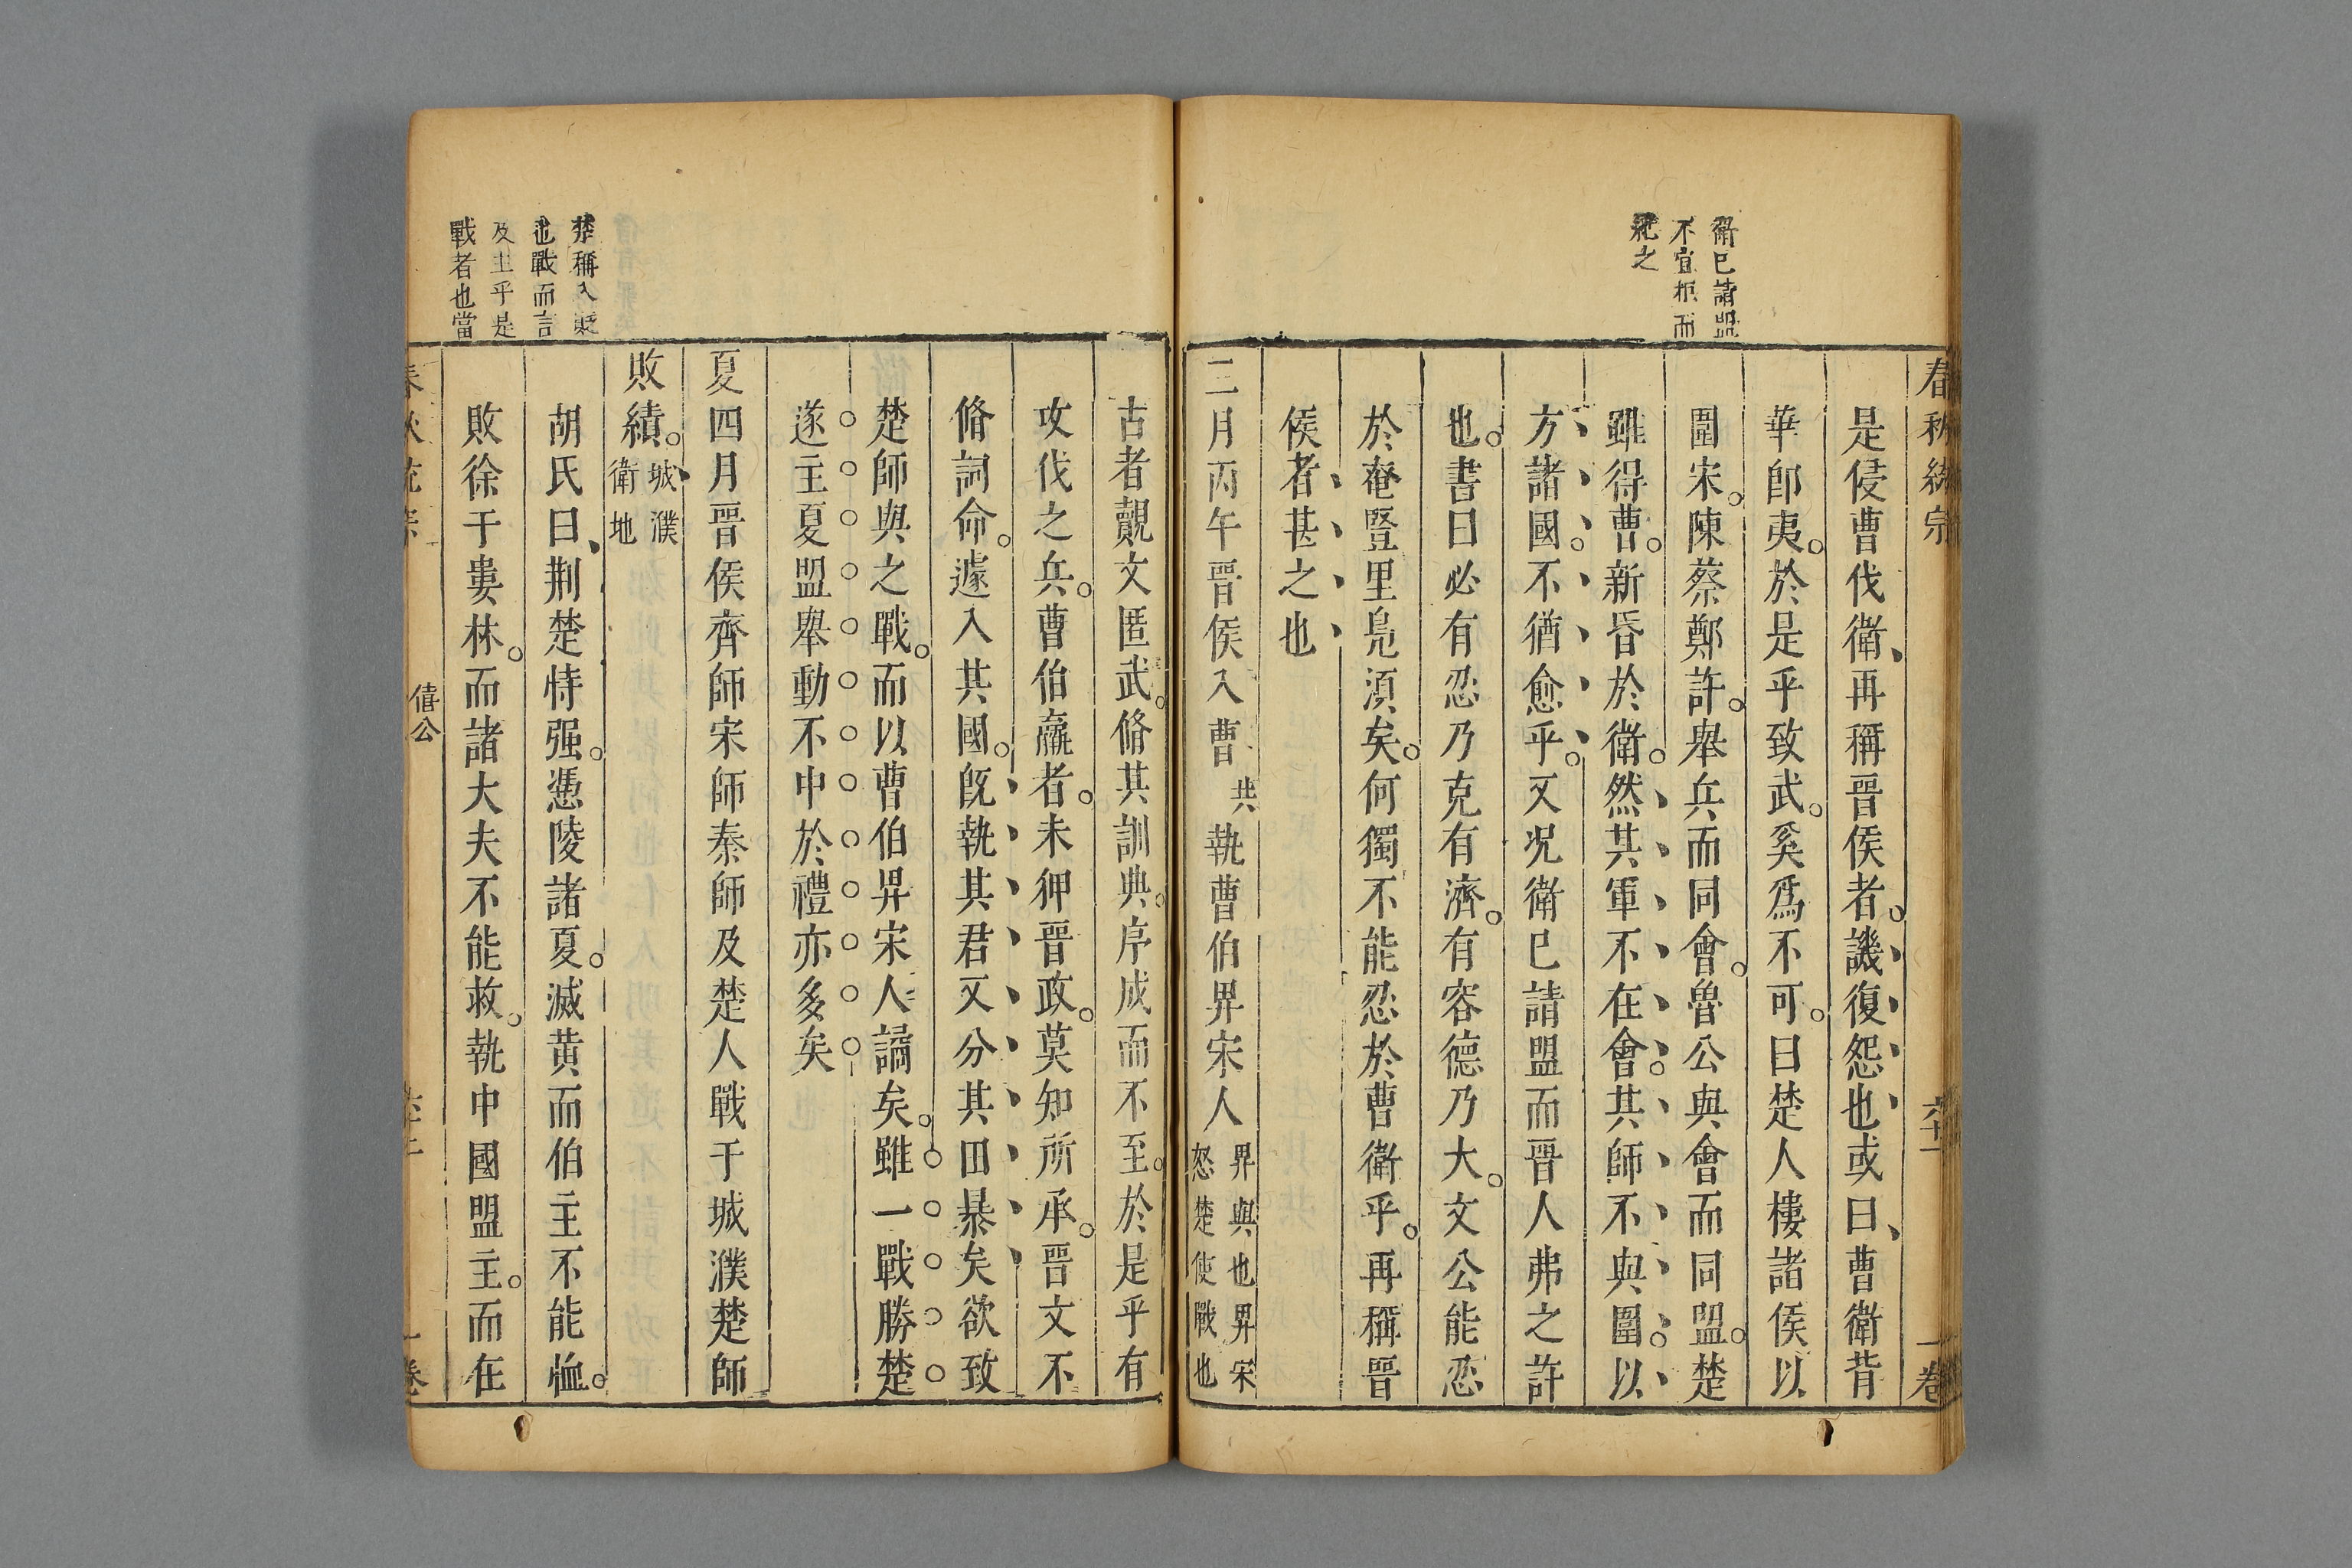 衛已請盟
不宜拒而
絶之
是侵曹伐衛再稱晉侯者譏復怨也或曰曹衛背
華卽夷於是乎致武奚爲不可曰楚人摟諸侯以
圍宋陳蔡鄭許舉兵而同會魯公與會而同盟楚
雖得曹新昏於衛然其軍不在會其師不與圍以
方諸國不猶愈乎又况衛已請盟而晉人弗之許
也書曰必有忍乃克有濟有容德乃大文公能忍
於奄豎里鳧湏矣何獨不能忍於曹衛乎再稱晉
侯者甚之也
三月丙午晉侯入曹共執曹伯畀宋人畀與也畀宋
怒楚使戰也
楚稱人貶
也戰而言
及主乎是
戰者也當
古者覿文匿武脩其訓典序成而不至於是乎有
攻伐之兵曹伯羸者未狎晉政莫知所承晉文不
脩詞命遽入其國旣執其君又分其田暴矣欲致
楚師與之戰而以曹伯畀宋人譎矣雖一戰勝楚
遂主夏盟舉動不中於禮亦多矣
夏四月晉侯齊師宋師秦師及楚人戰于城濮楚師
敗績城濮
衛地
胡氏曰荆楚恃强憑陵諸夏滅黄而伯主不能恤
敗徐于婁林而諸大夫不能救執中國盟主而在
僖公